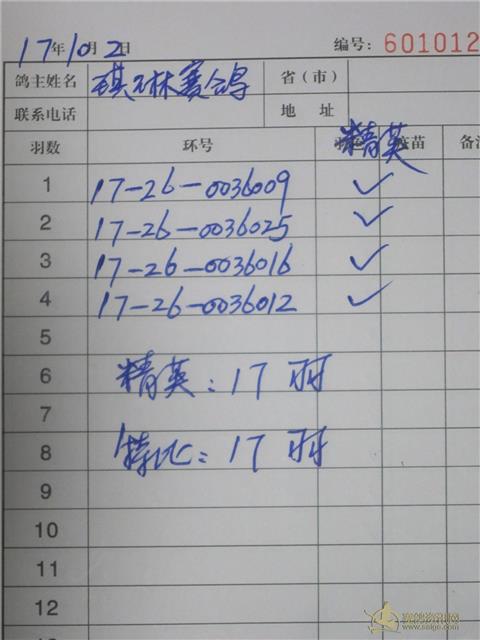 17年10月2日 编号: 601012
鸽主姓名 琪琳赛鸽 省(市)
联系电话 地 址
羽数 环号 精英 苗 备注
1 17-26-0036009 ✓
2 17-26-0036025 ✓
3 17-26-0036016 ✓
4 17-26-0036012 ✓
5
6 精英: 17羽
7
8 特比: 17羽
9
10
11
12
赛鸽资讯网
www.saige.com